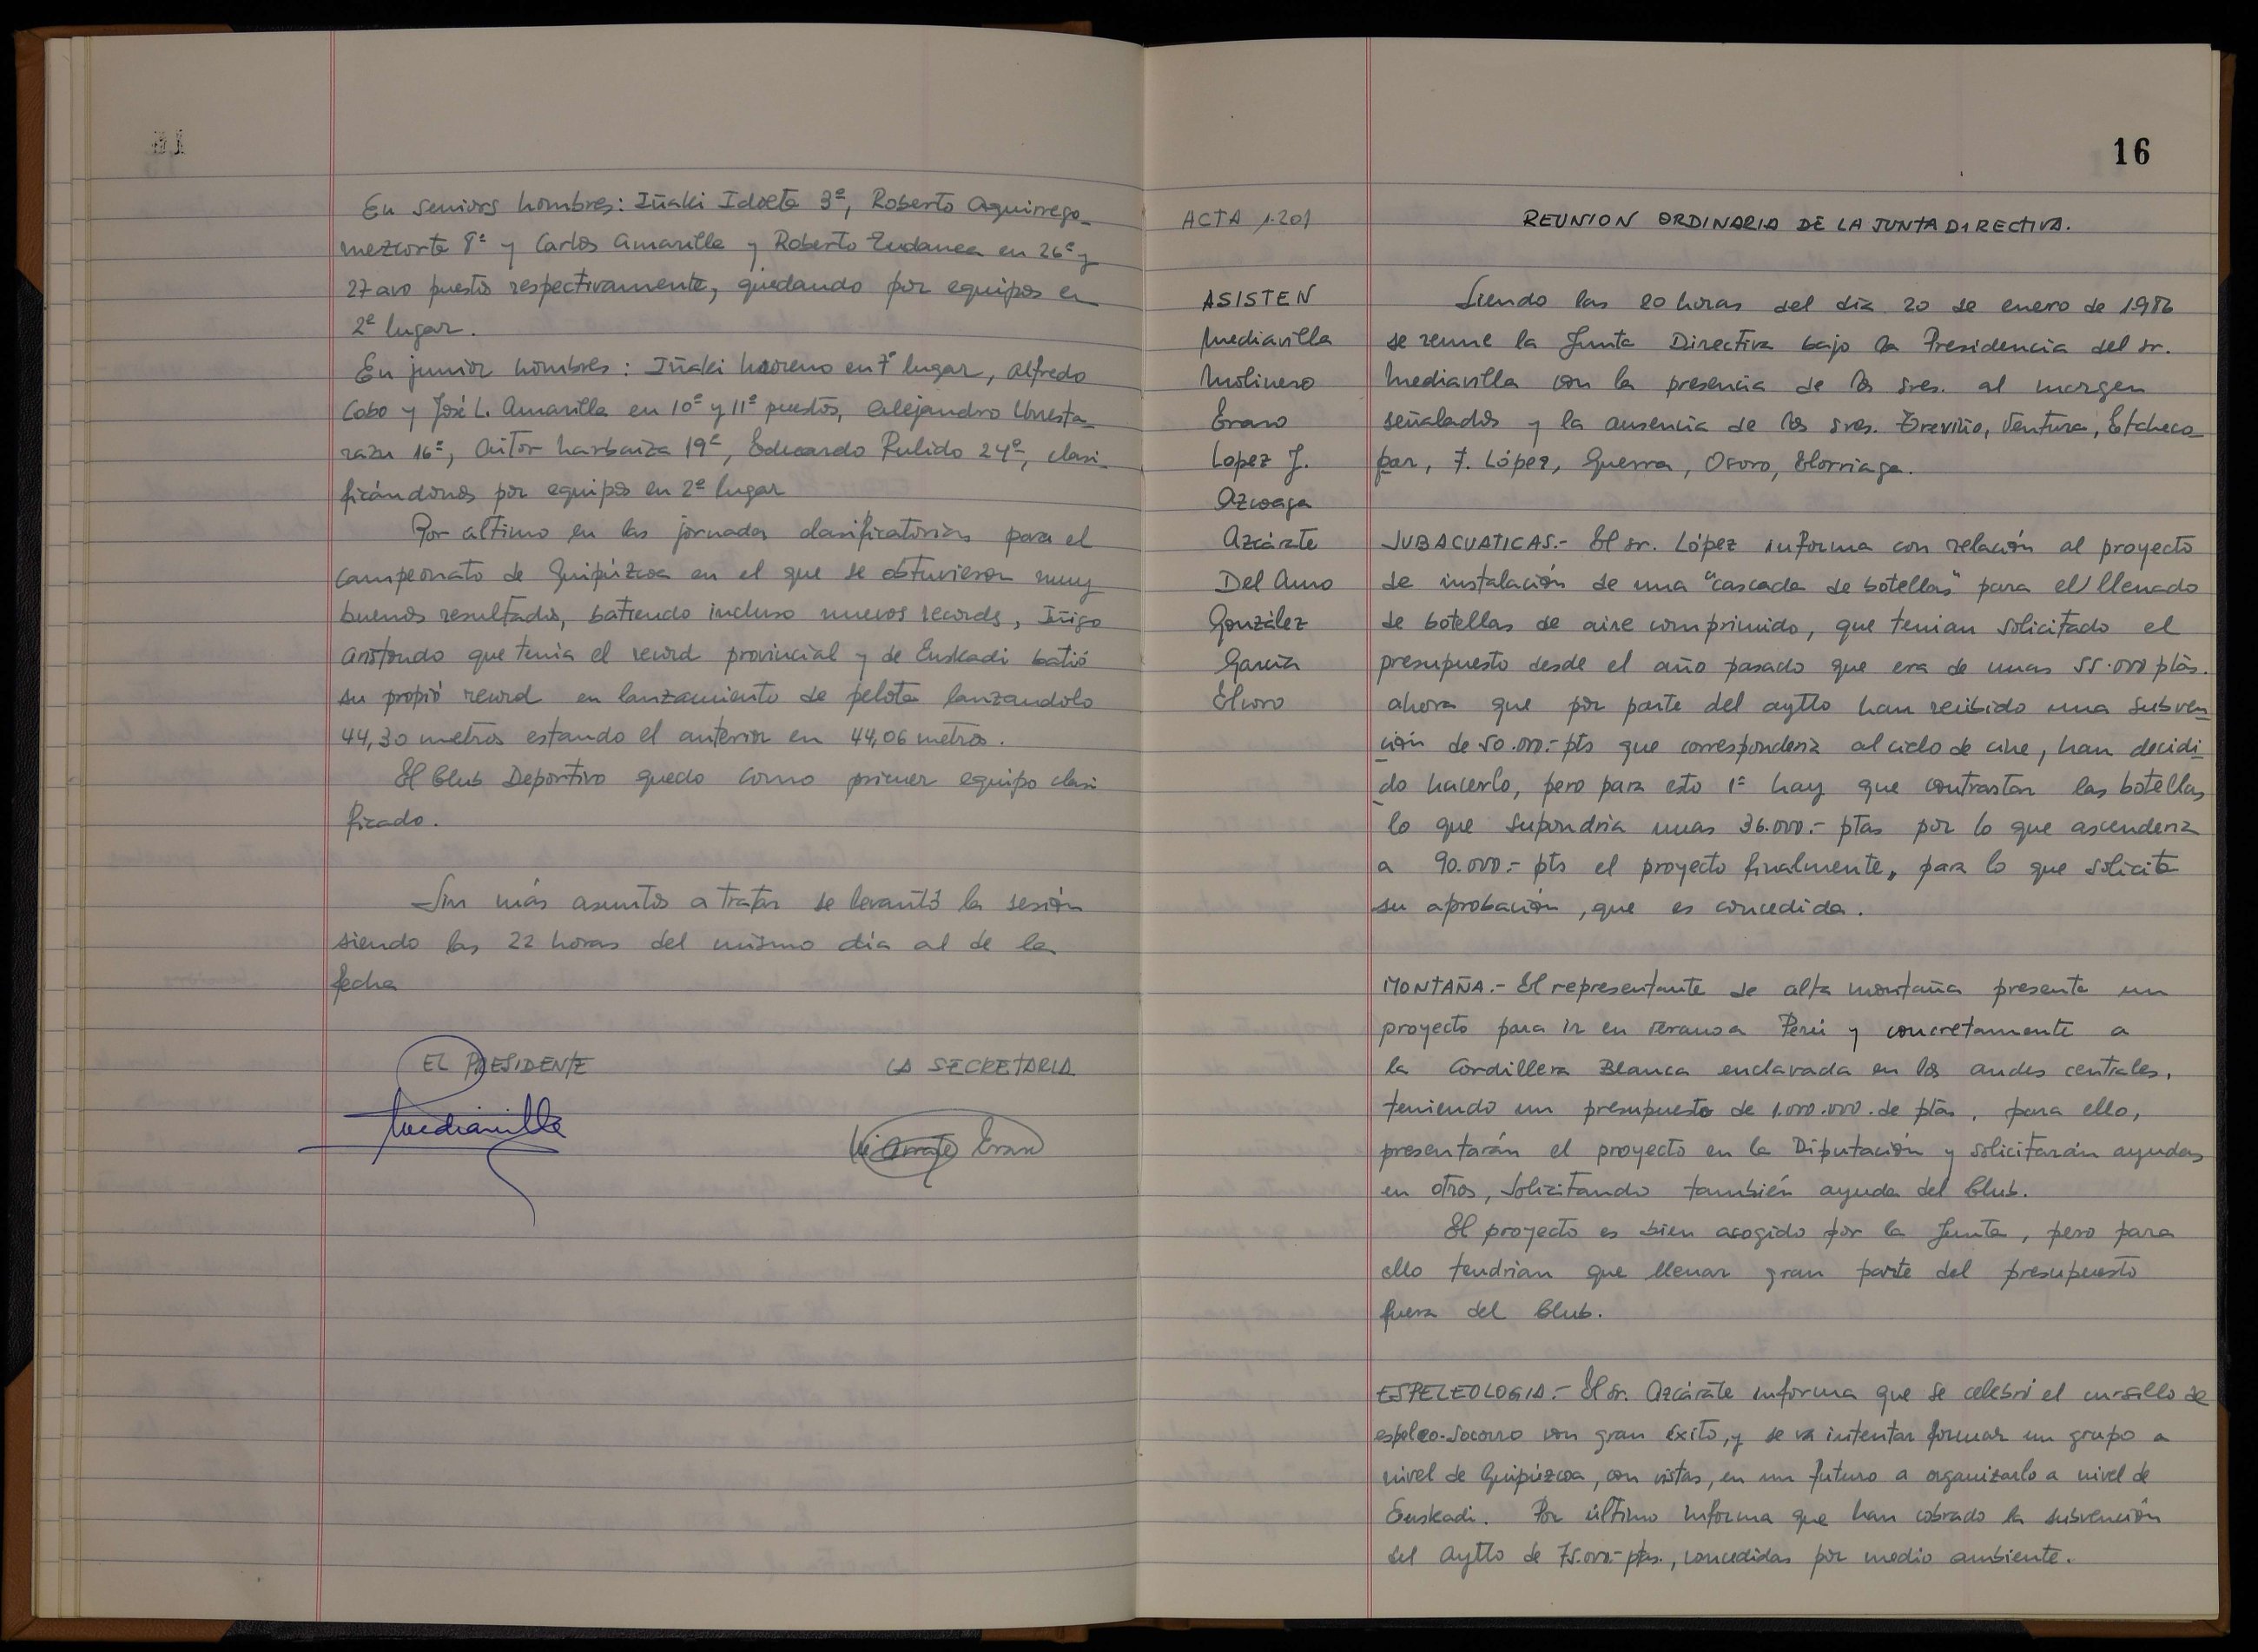 En seniors hombres: Iñaki Idoeta 3º, Roberto Aguirrego-
mezcorta 8º y Carlos Amarilla y Roberto Eudanea en 26º y
27 avo puestos respectivamente, quedando por equipos en
2º lugar.
En junior hombres: Iñaki Moreno en 7º lugar, Alfredo
Cobo y José L. Amarilla en 10º y 11º puestos, Alejandro Unesta-
razu 16º, Aitor Narbaiza 19º, Eduardo Pulido 24º, clasi-
ficándonos por equipos en 2º lugar
Por ultimo en las jornadas clasificatorias para el
Campeonato de Guipúzcoa en el que se obtuvieron muy
buenos resultados, batiendo incluso nuevos records, Iñigo
Aristondo que tenia el record provincial y de Euskadi batió
su propio record en lanzamiento de pelota lanzandolo
44,30 metros estando el anterior en 44,06 metros.
El Club Deportivo quedo como primer equipo clasi
ficado.
Sin más asuntos a tratar se levantó la sesión
siendo las 22 horas del mismo día al de la
fecha
EL PRESIDENTE LA SECRETARIA
Mediavilla Mª Arrate Eraso
16
ACTA 1.201 REUNION ORDINARIA DE LA JUNTA DIRECTIVA.
ASISTEN
Mediavilla
Molinero
Eraso
Lopez J.
Azcoaga
Azcárate
Del Amo
González
García
Elcoro
Siendo las 20 horas del día 20 de enero de 1986
se reune la Junta Directiva bajo la Presidencia del sr.
Mediavilla con la presencia de los sres. al margen
señalados y la ausencia de los sres. Treviño, Ventura, Etcheco-
par, F. López, Guerra, Osoro, Elorriaga.
SUBACUATICAS.- El sr. López informa con relación al proyecto
de instalación de una "cascada de botellas" para el llenado
de botellas de aire comprimido, que tenian solicitado el
presupuesto desde el año pasado que era de unas 55.000 ptas.
ahora que por parte del aytto han recibido una subven
ción de 50.000.- pts que corresponderia al ciclo de cine, han decidi
do hacerlo, pero para esto 1º hay que contrastar las botellas
lo que supondría unas 36.000.- ptas por lo que ascenderia
a 90.000.- pts el proyecto finalmente, para lo que solicita
su aprobación, que es concedida.
MONTAÑA.- El representante de alta montaña presenta un
proyecto para ir en verano a Perú y concretamente a
la Cordillera Blanca enclavada en los andes centrales,
teniendo un presupuesto de 1.000.000. de ptas, para ello,
presentarán el proyecto en la Diputación y solicitarán ayudas
en otros, solicitando también ayuda del Club.
El proyecto es bien acogido por la Junta, pero para
ello tendrian que llenar gran parte del presupuesto
fuera del Club.
ESPELEOLOGIA.- El sr. Azcárate informa que se celebró el cursillo de
espeleo-socorro con gran éxito, y se va intentar formar un grupo a
nivel de Guipúzcoa, con vistas, en un futuro a organizarlo a nivel de
Euskadi. Por último informa que han cobrado la subvención
del Aytto de 75.000.- ptas., concedidas por medio ambiente.